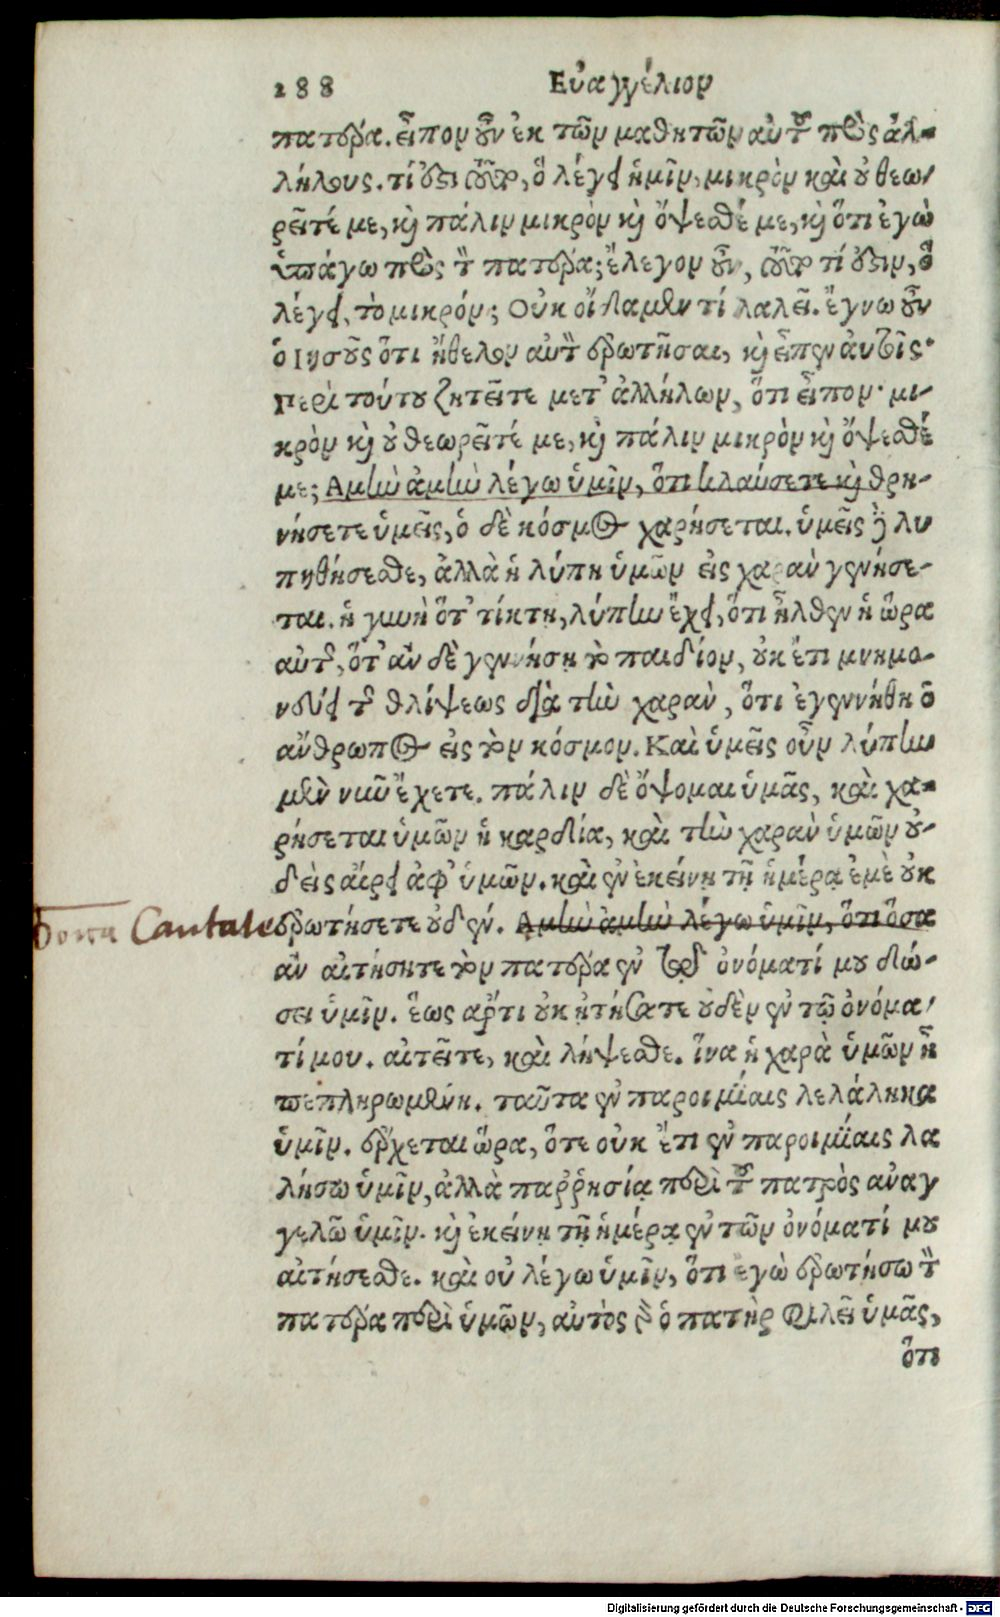 288 Εὐαγγέλιον
πατέρα. εἶπον οὖν ἐκ τῶν μαθητῶν αὐτοῦ πρὸς ἀλ-
λήλους. τί ἐστι τοῦτο, ὃ λέγει ἡμῖν, μικρὸν καὶ οὐ θεω-
ρεῖτέ με, καὶ πάλιν μικρὸν καὶ ὄψεσθέ με, καὶ ὅτι ἐγὼ
ὑπάγω πρὸς τὸν πατέρα; ἔλεγον οὖν, τοῦτο τί ἐστιν, ὃ
λέγει, τὸ μικρόν; Οὐκ οἴδαμεν τί λαλεῖ. ἔγνω οὖν
ὁ Ιησοῦς ὅτι ἤθελον αὐτὸν ἐρωτῆσαι, καὶ εἶπεν αὐτοῖς·
Περὶ τούτου ζητεῖτε μετ' ἀλλήλων, ὅτι εἶπον· μι-
κρὸν καὶ οὐ θεωρεῖτέ με, καὶ πάλιν μικρὸν καὶ ὄψεσθέ
με; Αμὴν ἀμὴν λέγω ὑμῖν, ὅτι κλαύσετε καὶ θρη-
νήσετε ὑμεῖς, ὁ δὲ κόσμος χαρήσεται. ὑμεῖς δὲ λυ
πηθήσεσθε, ἀλλὰ ἡ λύπη ὑμῶν εἰς χαρὰν γενήσε-
ται. ἡ γυνὴ ὅτ' τίκτῃ, λύπην ἔχει, ὅτι ἦλθεν ἡ ὥρα
αὐτῆς, ὅτ' ἂν δὲ γεννήσῃ τὸ παιδίον, οὐκ ἔτι μνημο-
νεύει τῆς θλίψεως διὰ τὴν χαρὰν, ὅτι ἐγεννήθη ὁ
ἄνθρωπος εἰς τὸν κόσμον. Καὶ ὑμεῖς οὖν λύπην
μὲν νῦν ἔχετε. πάλιν δὲ ὄψομαι ὑμᾶς, καὶ χα-
ρήσεται ὑμῶν ἡ καρδία, καὶ τὴν χαρὰν ὑμῶν οὐ-
δεὶς αἴρει ἀφ' ὑμῶν. καὶ ἐν ἐκείνῃ τῇ ἡμέρᾳ ἐμὲ οὐκ
Dona Cantate ἐρωτήσετε οὐδέν. Αμὴν ἀμὴν λέγω ὑμῖν, ὅτι ὅσα
ἂν αἰτήσητε τὸν πατέρα ἐν τῷ ὀνόματί μου δώ-
σει ὑμῖν. ἕως ἄρτι οὐκ ᾐτήσατε οὐδὲν ἐν τῷ ὀνόμα-
τί μου. αἰτεῖτε, καὶ λήψεσθε. ἵνα ἡ χαρὰ ὑμῶν ᾖ
πεπληρωμένη. ταῦτα ἐν παροιμίαις λελάληκα
ὑμῖν. ἔρχεται ὥρα, ὅτε οὐκ ἔτι ἐν παροιμίαις λα
λήσω ὑμῖν, ἀλλὰ παῤῥησίᾳ περὶ τοῦ πατρὸς ἀναγ
γελῶ ὑμῖν. καὶ ἐκείνῃ τῇ ἡμέρᾳ ἐν τῶν ὀνόματί μου
αἰτήσεσθε. καὶ οὐ λέγω ὑμῖν, ὅτι ἐγὼ ἐρωτήσω τὸν
πατέρα περὶ ὑμῶν, αὐτὸς γὰρ ὁ πατὴρ φιλεῖ ὑμᾶς,
ὅτι
Digitalisierung gefördert durch die Deutsche Forschungsgemeinschaft - DFG